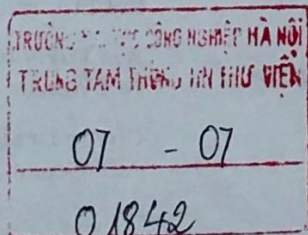 TRƯỜNG ĐẠI HỌC CÔNG NGHIỆP HÀ NỘI
TRUNG TÂM THÔNG TIN THƯ VIỆN
07 - 07
01842